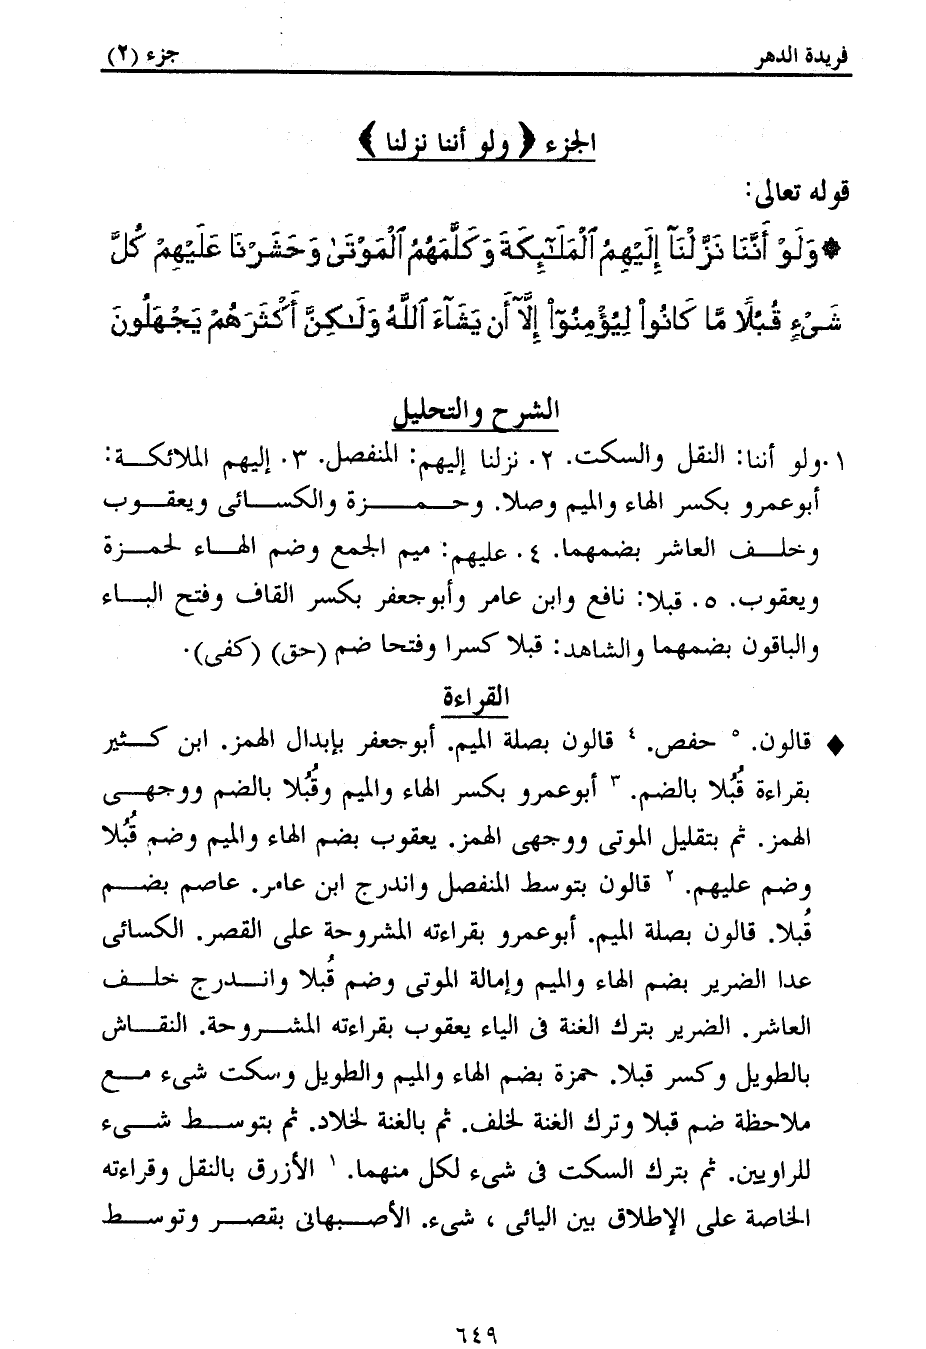 فريدة الدهر
جزء (٢)
الجزء ﴿ ولو أننا نزلنا ﴾
قوله تعالى:
* وَلَوْ أَنَّنَا نَزَّلْنَآ إِلَيْهِمُ ٱلْمَلَـٰٓئِكَةَ وَكَلَّمَهُمُ ٱلْمَوْتَىٰ وَحَشَرْنَا عَلَيْهِمْ كُلَّ
شَىْءٍ قُبُلًا مَّا كَانُوا۟ لِيُؤْمِنُوٓا۟ إِلَّآ أَن يَشَآءَ ٱللَّهُ وَلَـٰكِنَّ أَكْثَرَهُمْ يَجْهَلُونَ
الشرح والتحليل
١. ولو أننا: النقل والسكت. ٢. نزلنا إليهم: المنفصل. ٣. إليهم الملائكة:
أبوعمرو بكسر الهاء والميم وصلا. وحمزة والكسائى ويعقوب
وخلف العاشر بضمهما. ٤. عليهم: ميم الجمع وضم الهاء لحمزة
ويعقوب. ٥. قبلا: نافع وابن عامر وأبوجعفر بكسر القاف وفتح الباء
والباقون بضمهما والشاهد: قبلا كسرا وفتحا ضم (حق) (كفى).
القراءة
♦ قالون. ٥ حفص. ٤ قالون بصلة الميم. أبوجعفر بإبدال الهمز. ابن كثير
بقراءة قُبُلا بالضم. ٣ أبوعمرو بكسر الهاء والميم وقُبُلا بالضم ووجهى
الهمز. ثم بتقليل الموتى ووجهى الهمز. يعقوب بضم الهاء والميم وضم قُبُلا
وضم عليهم. ٢ قالون بتوسط المنفصل واندرج ابن عامر. عاصم بضم
قُبلا. قالون بصلة الميم. أبوعمرو بقراءته المشروحة على القصر. الكسائى
عدا الضرير بضم الهاء والميم وإمالة الموتى وضم قُبلا واندرج خلف
العاشر. الضرير بترك الغنة فى الياء يعقوب بقراءته المشروحة. النقاش
بالطويل وكسر قبلا. حمزة بضم الهاء والميم والطويل وسكت شىء مع
ملاحظة ضم قبلا وترك الغنة لخلف. ثم بالغنة لخلاد. ثم بتوسط شىء
للراويين. ثم بترك السكت فى شىء لكل منهما. ١ الأزرق بالنقل وقراءته
الخاصة على الإطلاق بين اليائى ، شىء. الأصبهانى بقصر وتوسط
٦٤٩